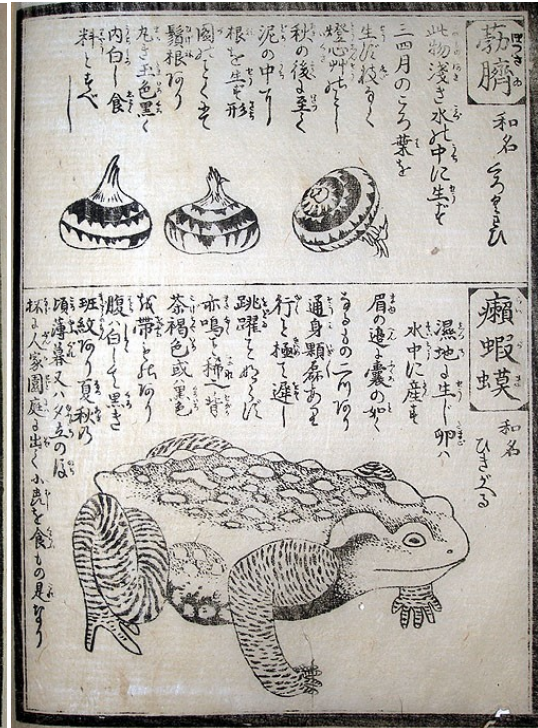 葧臍
和名 くろくわひ
此物淺き水の中に生ず
三四月のころ葉を
生ず枝なく
燈心艸の
秋の後に至て
泥の中に
根を生ず形
圓
鬚根あり
色黒く
内白し食
料とすべし
癩蝦蟇
和名 ひきがへる
濕地に生じ卵ハ
水中に産す
眉の邊に嚢の如く
なるもの一つあり
通身顆磊あり
行こと極て遅し
跳躍こと
亦鳴こと稀也背
茶褐色或黒色
を帯
腹ハ白して黒き
班紋あり夏秋の
頃薄暮又ハ夕立の後
人家園庭に出て小虎を食もの是なり